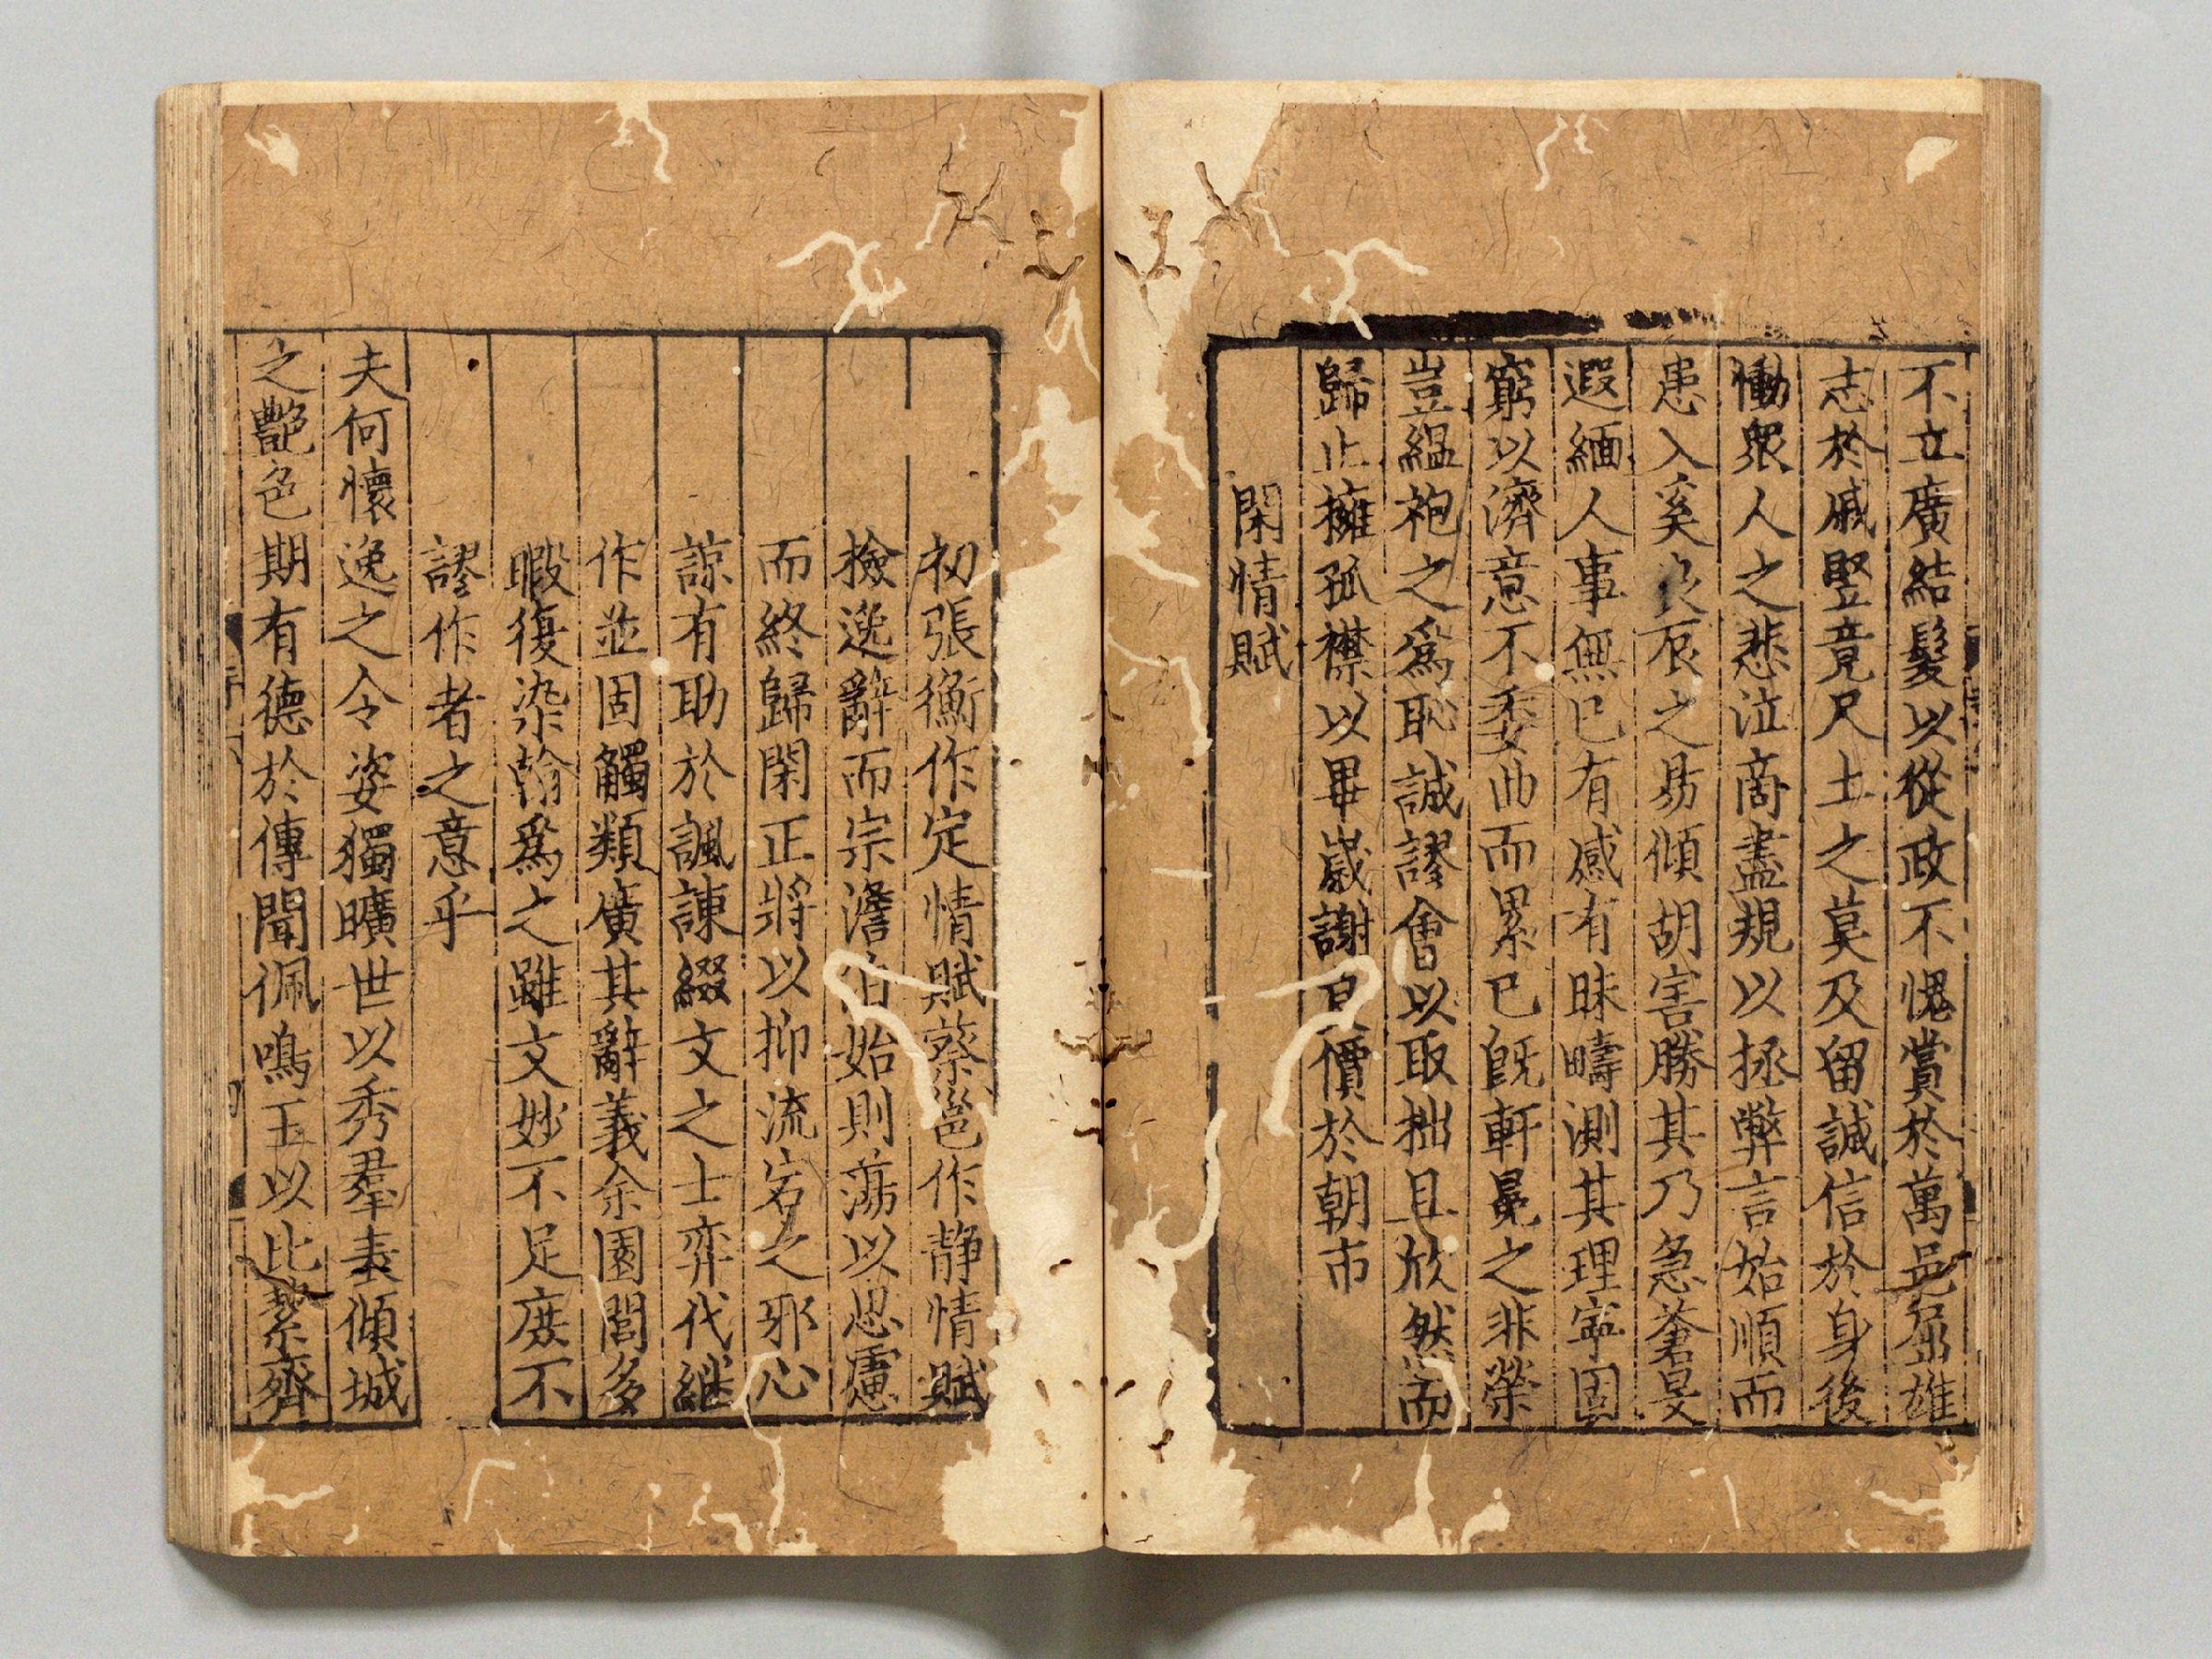 不立廣結髮以從政不愧賞於萬邑屈雄
志於戚竪竟尺土之莫及留誠信於身後
慟衆人之悲泣商盡規以拯弊言始順而
患入奚良辰之易傾胡害勝其乃急蒼旻
遐緬人事無已有感有昧疇測其理寧固
窮以濟意不委曲而累已既軒冕之非榮
豈緼袍之爲恥誠謬會以取拙且欣然而
歸止擁孤襟以畢嵗謝良價於朝市
閑情賦
初張衡作定情賦蔡邕作静情賦
檢逸辭而宗澹泊始則蕩以思慮
而終歸閑正將以抑流宕之邪心
諒有助於諷諫綴文之士弈代継
作並固觸類廣其辭義余園閭多
暇復染翰爲之雖文妙不足庻不
謬作者之意乎
夫何懷逸之令姿獨曠世以秀羣表傾城
之艶色期有德於傳聞佩鳴玉以比㓗齊